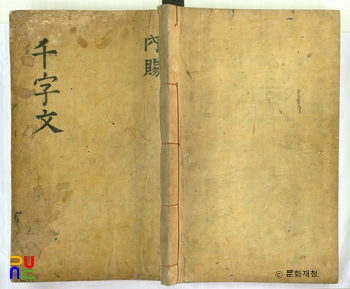 千字文
內賜
© 문화재청.